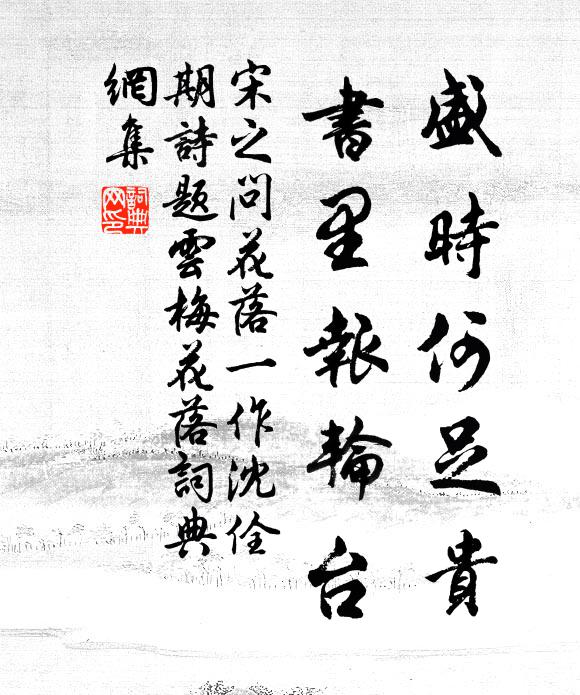 盛時何足貴
書里報輪台
宋之問花落一作沈佺
期詩題雲梅花落詞典
網集
詞典
网印